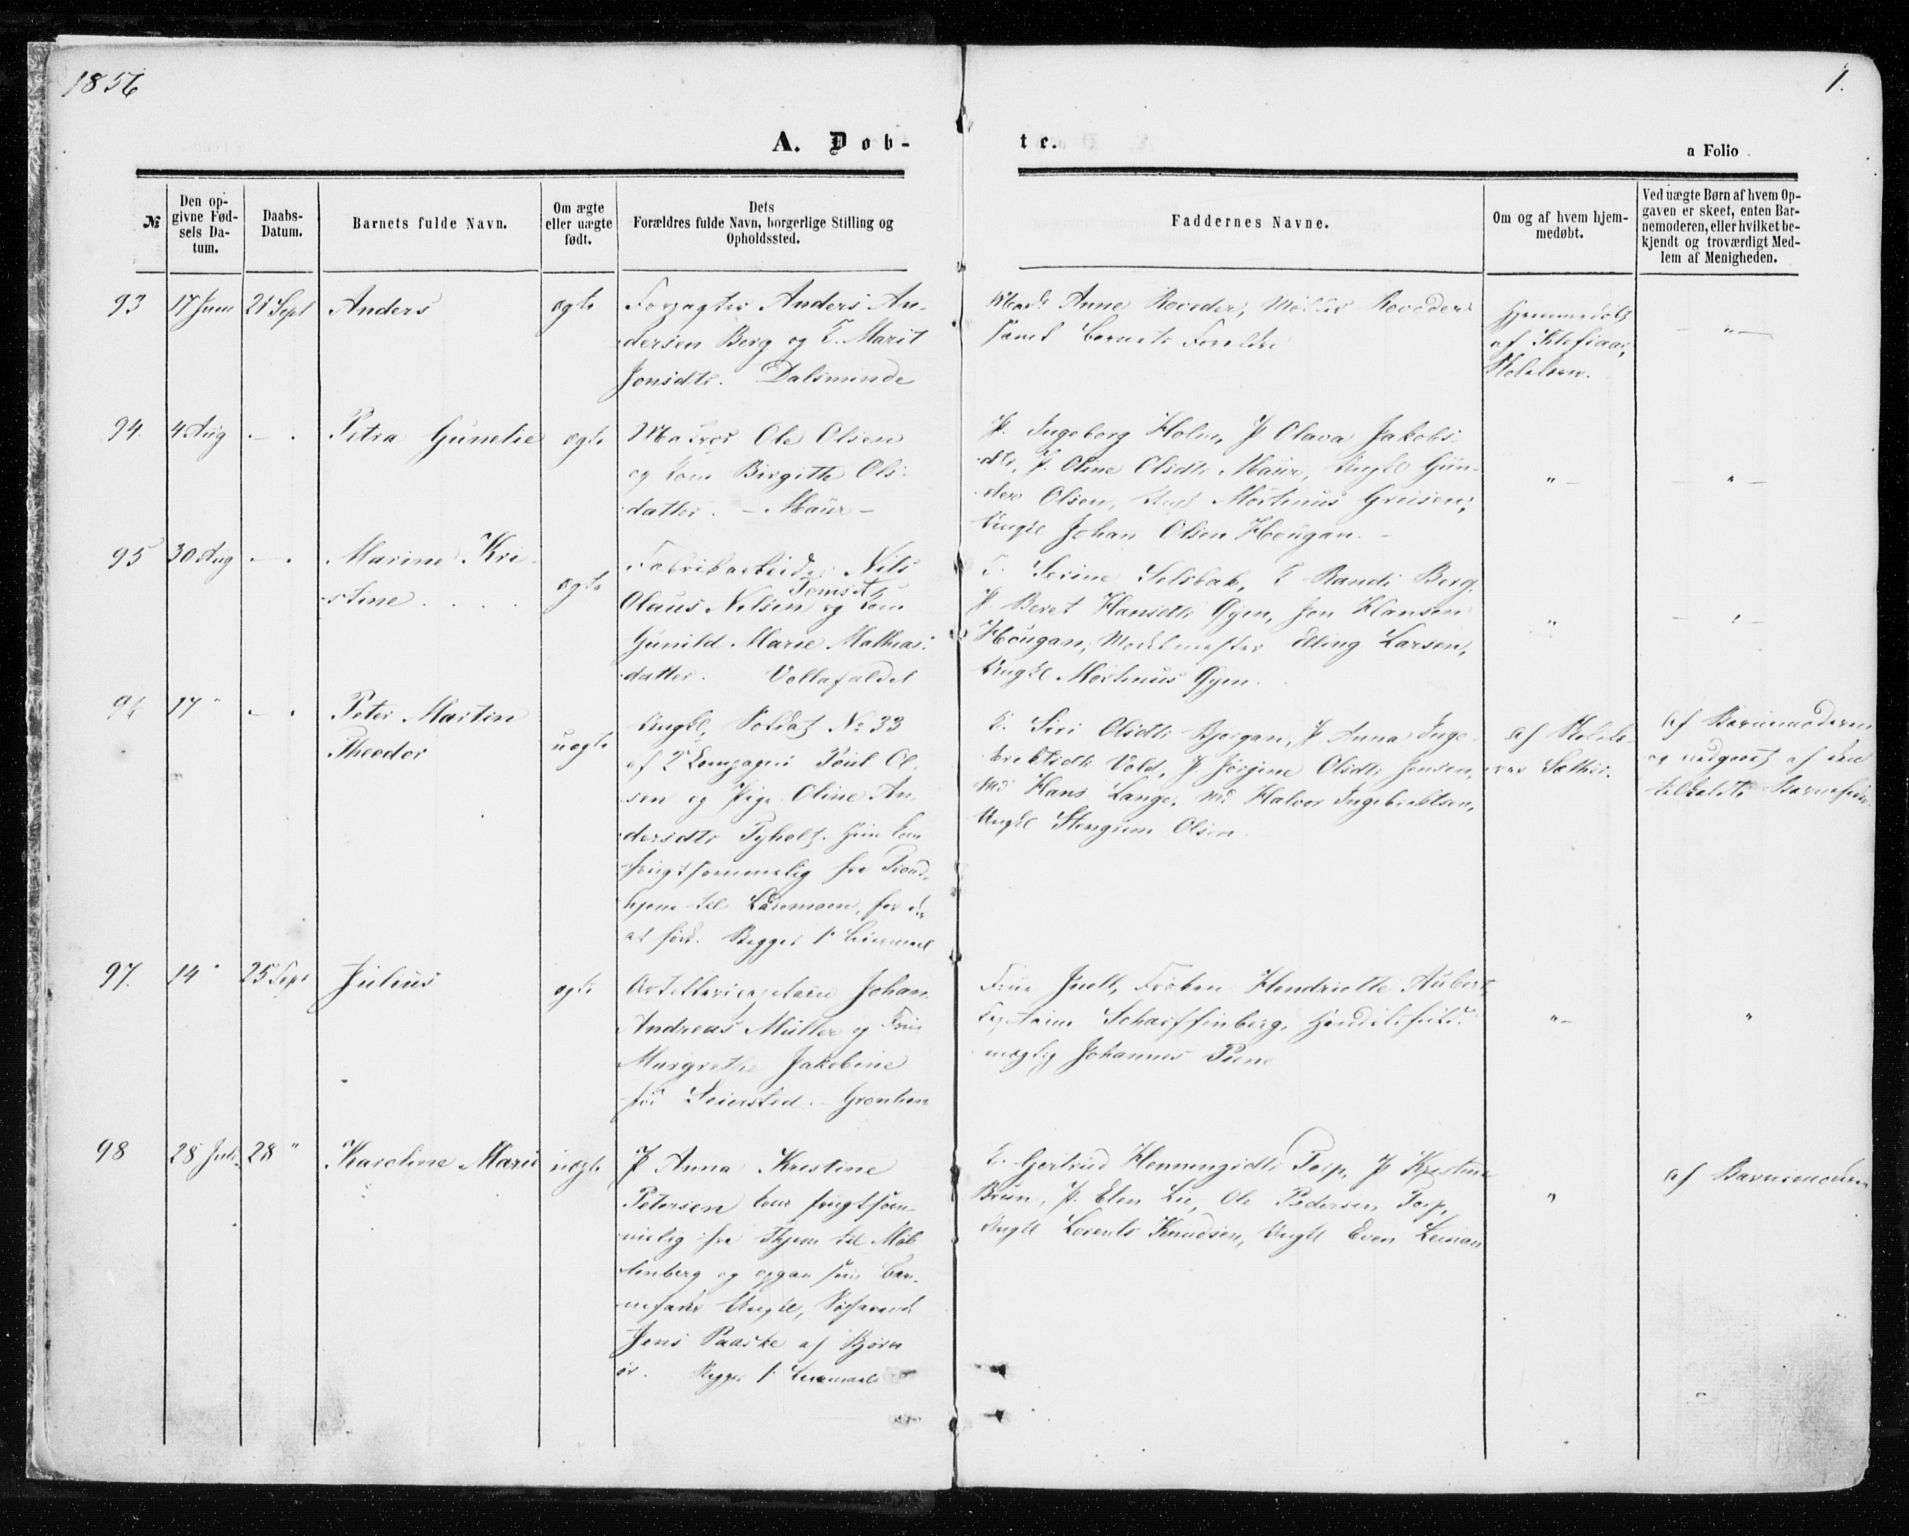 1856
1.
A. Døb-
te.
a Folio
№
Den op-
givne Fød-
sels Da-
tum.
Daabs-
Datum.
Barnets fulde Navn.
Om ægte
eller uægte
født.
Dets
Forældres fulde Navn, borgerlige Stilling og
Opholdssted.
Faddernes Navne.
Om og af hvem hjem-
medøbt.
Ved uægte Børn af hvem Op-
gaven er skeet, enten Bar-
nemoderen, eller hvilket be-
kjendt og troværdigt Med-
lem af Menigheden.
93
17 Juni
21 Sept
Anders
ægte
Forpagter Anders An-
dersen Berg og K. Marit
Jonsdtr. Dalsminde
Anne
samt Barnets Forældre
Hjemmedøbt
af
94.
4 Aug
Petra Gunelie
ægte
Matros Ole Olsen
og Kone Birgitte Ols-
datter. - Maur -
P. Ingeborg Holm, P Olava Jakobs-
dtr, P. Oline Olsdtr Maur, Ungkl Gun-
der Olsen, Ungk Mortinus Greisen,
Ungkl Johan Olsen Hougan. -
95
30 Aug
Marine Kri-
stine
ægte
Fabrikarbeider Nils
Olaus Nilsen Tomset og Kone
Gunild Marie Mathias-
datter.
K. Serine Selsbak, K Randi Berg,
P. Beret Hansdtr Øyen, Jon Hansen
Hougan, Modelmester Elling Larsen,
Ungkl Mortinus Øyen.
96
17 "
Peter Martin
Theodor
uægte
Ungkl, Soldat No 33
af 2 Kompagni Poul Ol-
sen og Pige Oline An-
dersdtr Tyholt. Hun kom
frugtsommelig fra Trond-
hjem til
at føde. Begges 1ste Leiermaal
K. Siri Olsdtr Bjørgan, P Anna Inge-
brektsdtr Vold, P. Jørgine Olsdtr Jensen,
Md Hans Lange, Md Halvor Ingebrektsen,
Ungkl Olsen
af
Sæther.
af Barnemoderen
og vedgaaet af den
tilkaldte Barnefader
97.
14 "
25 Sept
Julius
ægte
Artillericapitain Johan
Andreas Müller og Frue
Margrethe Jakobine
fød Seiersted. -
Frue Juell, Frøken Hendriette Aubert,
Kaptain Scharffenberg, Handelsfuld-
mægtig Johannes Piene
98
28 Juli
28 "
Karoline Marie
uægte
P Anna Kristine
Petersen kom frugtsom-
melig fra Thjem til Møl-
lenberg og opgav som Bar-
nefader Ungkl,
Jens Paaske af Bjørn-
ør. Begges 1ste Leiermaal
K. Gertrud Henningsdtr Torp, P Kristine
Brun, P. Elen Lie, Ole Pedersen Torp,
Ungkl Lorents Knudsen, Ungkl Even Leinan
af Barnemoderen